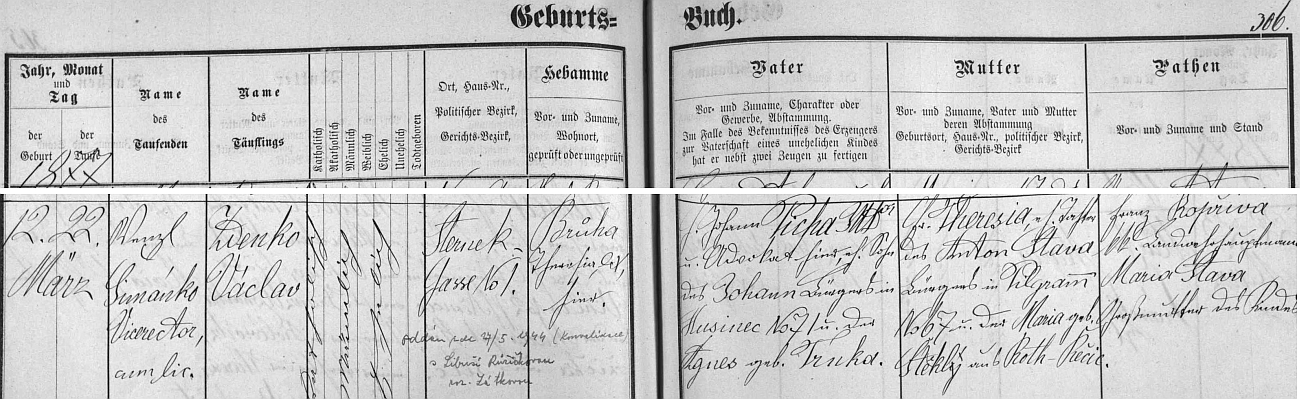 Geburts=
Buch.
306.
Jahr, Monat
und
Tag
der
Geburt
der
Taufe
Name
des
Taufenden
Name
des
Täuflings
Katholisch
Akatholisch
Männlich
Weiblich
Ehelich
Unehelich
Todtgeboren
Ort, Haus-Nr.,
Politischer Bezirk,
Gerichts-Bezirk,
Hebamme
Vor- und Zuname,
Wohnort,
geprüft oder ungeprüft
Vater
Vor- und Zuname, Charakter oder
Gewerbe, Abstammung.
Im Falle des Bekenntnisses des Erzeugers
zur Vaterschaft eines unehelichen Kindes
hat er nebst zwei Zeugen zu fertigen
Mutter
Vor- und Zuname, Vater und Mutter
deren Abstammung
Geburtsort, Haus-Nr., politischer Bezirk,
Gerichts-Bezirk
Pathen
Vor- und Zuname und Stand
12. 22.
März
Wenzl
Simánko
Vicerector,
Zdenko
Václav
Gasse No 1.
Bruha
Theresia
hier.
oddán dne 27/5. 1944
s Libuší Růžičkovou
roz. Látkovou
Johann Picha
u. Advokat hier, e. Sohn
des Johann Bürgers in
Husinec No 71 u. der
Agnes geb. Trnka.
Theresia, e. Tochter
des Anton Slava
Bürgers in Pilgram
No 67 u. der Maria geb.
aus Roth-Řečic.
Franz Kopřiva
kk. Landwehrhauptmann
Maria Slava
Großmutter des Kindes